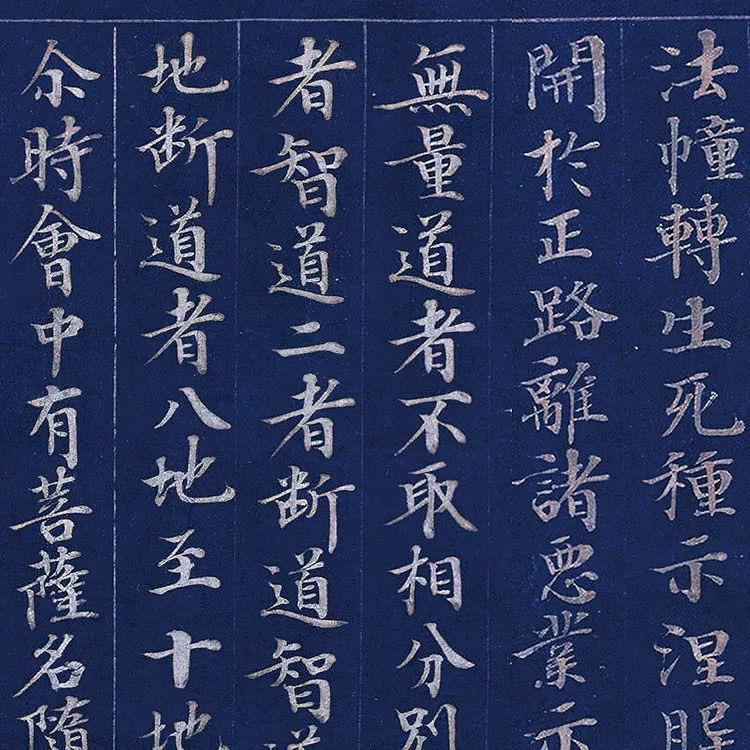 法幢轉生死種示涅
開於正路離諸惡業示
無量道者不取相分別
者智道二者断道智
地断道者八地至十地
尒時會中有菩薩名隨